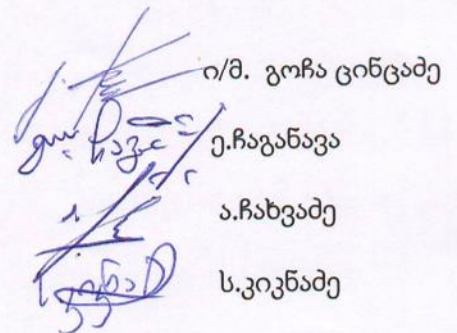 ი/მ. გოჩა ცინცაძე
ე.ჩაგანავა
ა.ჩახვაძე
ს.კიკნაძე